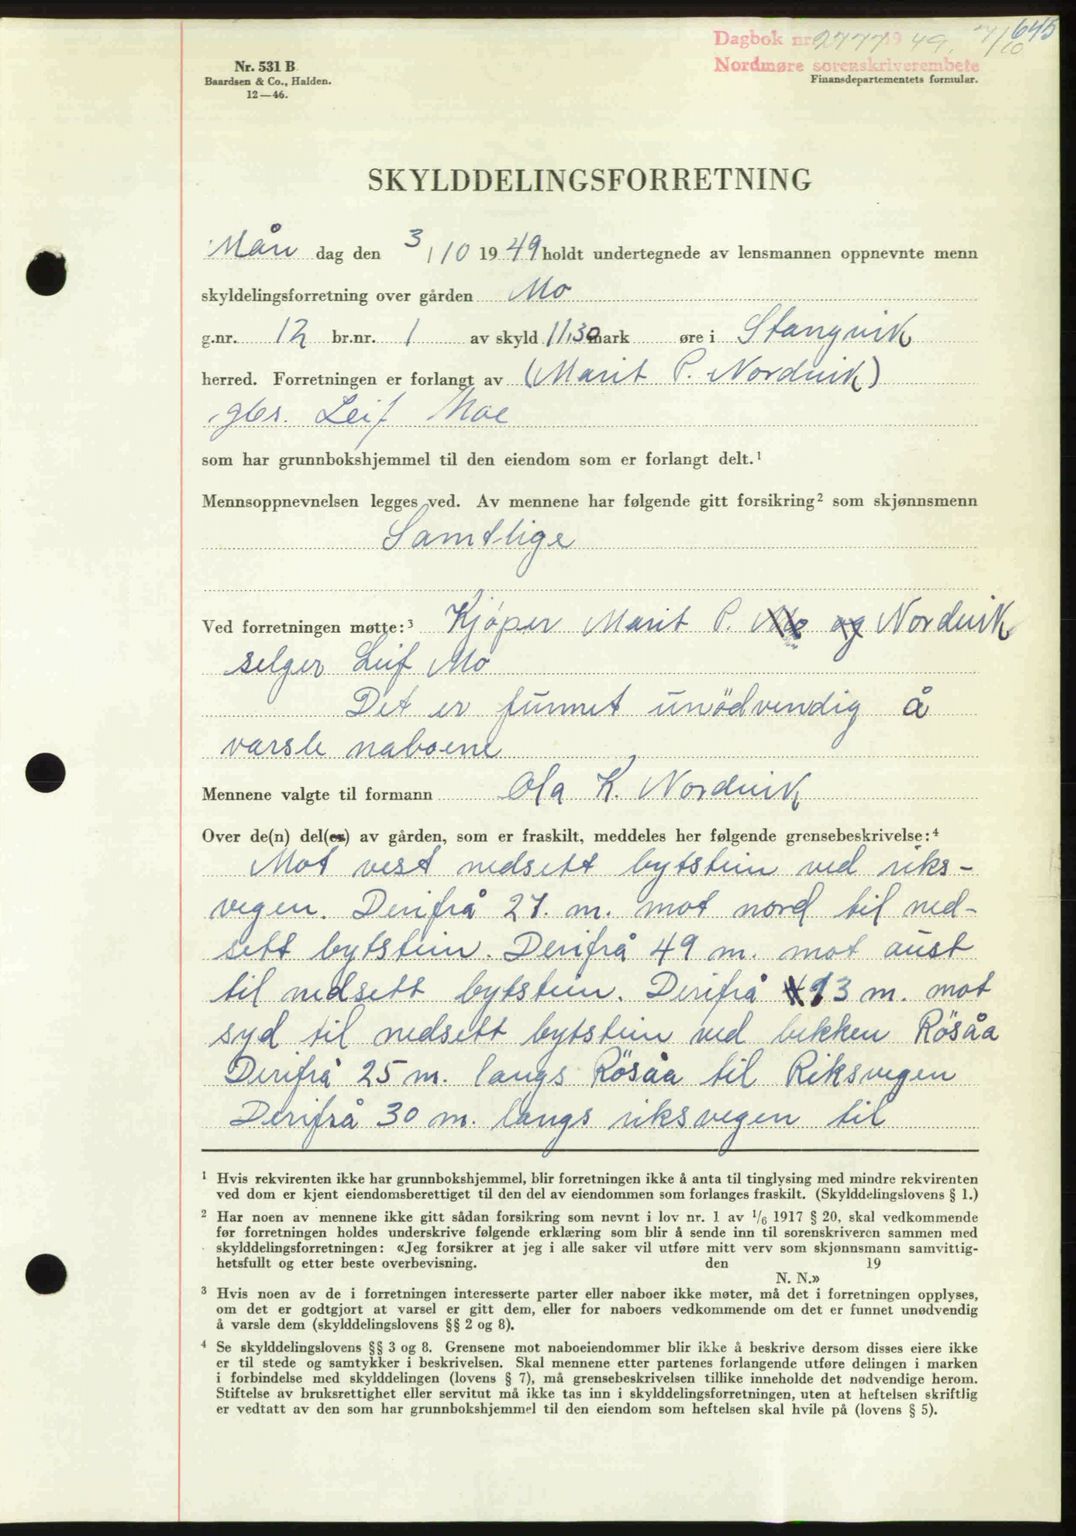 645
Dagbok nr 2777 19 49. 7/10
Nordmøre sorenskriverembete
Finansdepartementets formular.
Nr. 531 B
Baardsen & Co., Halden.
12—46.
SKYLDDELINGSFORRETNING
Mån dag den 3/10 1949 holdt undertegnede av lensmannen oppnevnte menn
skyldelingsforretning over gården Mo
g.nr. 12 br.nr. 1 av skyld 11,30 mark øre i Stangvik
herred. Forretningen er forlangt av (Marit P. Nordvik)
gbr. Leif Moe
som har grunnbokshjemmel til den eiendom som er forlangt delt.¹
Mennsoppnevnelsen legges ved. Av mennene har følgende gitt forsikring² som skjønnsmenn
Samtlige
Ved forretningen møtte:³ Kjøper Marit P. Mo og Nordvik
selger Leif Mo
Det er funnet unödvendig å
varsle naboene
Mennene valgte til formann Ola K. Nordvik
Over de(n) del(er) av gården, som er fraskilt, meddeles her følgende grensebeskrivelse:⁴
Mot vest nedsett bytstein ved riks-
vegen. Derifrå 27. m. mot nord til ned-
sett bytstein. Derifrå 49 m. mot aust
til nedsett bytstein. Derifrå 13 m. mot
syd til nedsett bytstein ved bekken Rösåa
Derifrå 25 m. langs Rösåa til Riksvegen
Derifrå 30 m. langs riksvegen til
¹ Hvis rekvirenten ikke har grunnbokshjemmel, blir forretningen ikke å anta til tinglysing med mindre rekvirenten
ved dom er kjent eiendomsberettiget til den del av eiendommen som forlanges fraskilt. (Skylddelingslovens § 1.)
² Har noen av mennene ikke gitt sådan forsikring som nevnt i lov nr. 1 av 1/6 1917 § 20, skal vedkommende
før forretningen holdes underskrive følgende erklæring som blir å sende inn til sorenskriveren sammen med
skylddelingsforretningen: «Jeg forsikrer at jeg i alle saker vil utføre mitt verv som skjønnsmann samvittig-
hetsfullt og etter beste overbevisning. den 19
N. N.»
³ Hvis noen av de i forretningen interesserte parter eller naboer ikke møter, må det i forretningen opplyses,
om det er godtgjort at varsel er gitt dem, eller for naboers vedkommende om det er funnet unødvendig
å varsle dem (skylddelingslovens §§ 2 og 8).
⁴ Se skylddelingslovens §§ 3 og 8. Grensene mot naboeiendommer blir ikke å beskrive dersom disses eiere ikke
er til stede og samtykker i beskrivelsen. Skal mennene etter partenes forlangende utføre delingen i marken
i forbindelse med skylddelingen (lovens § 7), må grensebeskrivelsen tillike inneholde det nødvendige herom.
Stiftelse av bruksrettighet eller servitut må ikke tas inn i skylddelingsforretningen, uten at heftelsen skriftlig
er vedtatt av den som har grunnbokshjemmel til den eiendom som heftelsen skal hvile på (lovens § 5).